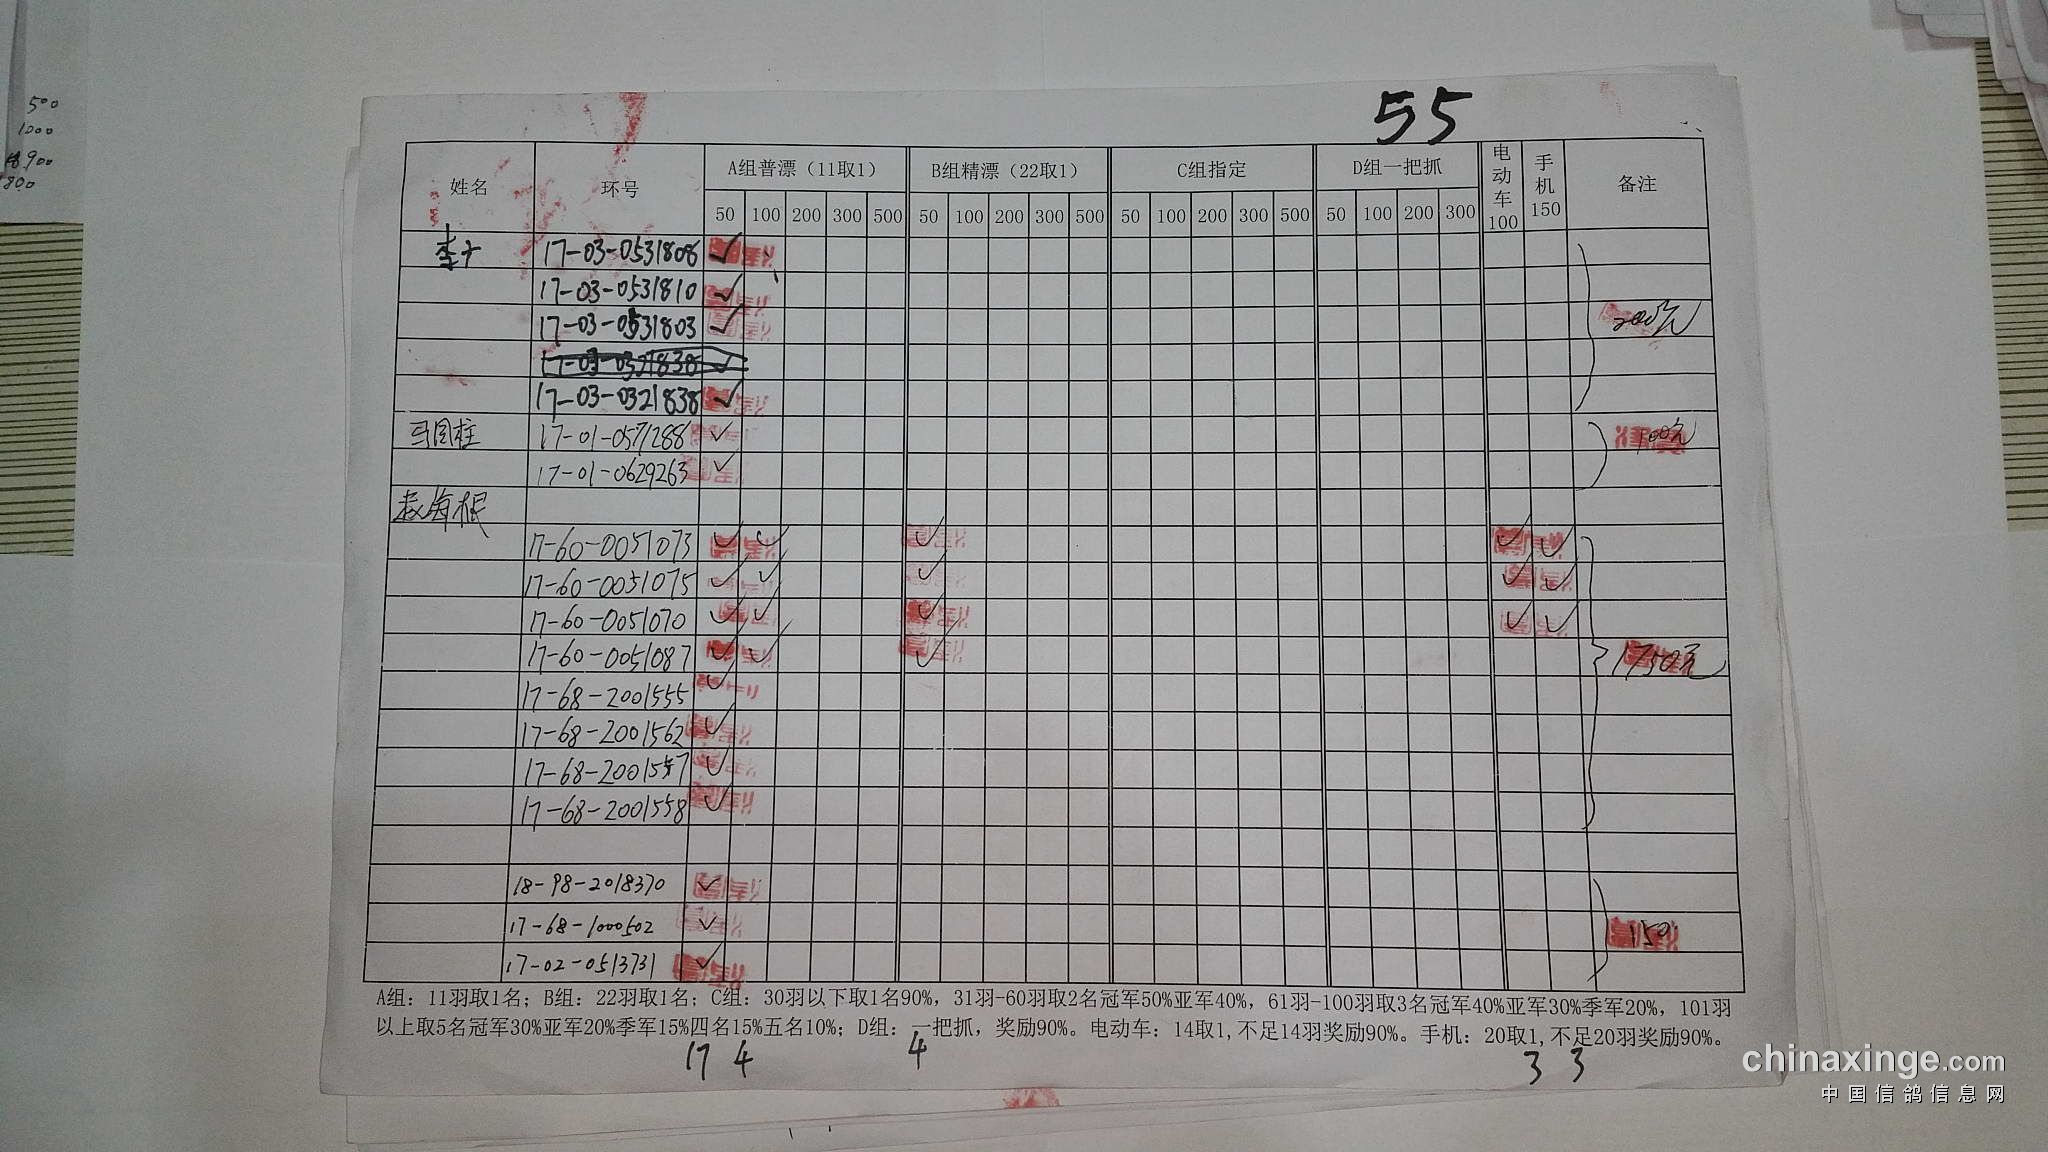 500
1000
900
800
55
姓名 环号 A组普漂（11取1） B组精漂（22取1） C组指定 D组一把抓 电动车100 手机150 备注
50 100 200 300 500 50 100 200 300 500 50 100 200 300 500 50 100 200 300
李 17-03-0531808 ✓
17-03-0531810 ✓
17-03-0531803 ✓ 200元
17-03-0321838 ✓
17-03-0321838 ✓
马国柱 17-01-0571288 ✓ 100元
17-01-0629263 ✓
海根
17-60-0051073 ✓ ✓ ✓ ✓ ✓
17-60-0051075 ✓ ✓ ✓ ✓ ✓
17-60-0051070 ✓ ✓ ✓ ✓ ✓
17-60-0051087 ✓ ✓ ✓ 1750元
17-68-2001555 ✓
17-68-2001562 ✓
17-68-2001557 ✓
17-68-2001558 ✓
18-98-2018370 ✓
17-68-1000502 ✓ 150
17-02-0513731 ✓
A组：11羽取1名；B组：22羽取1名；C组：30羽以下取1名90%，31羽-60羽取2名冠军50%亚军40%，61羽-100羽取3名冠军40%亚军30%季军20%，101羽
以上取5名冠军30%亚军20%季军15%四名15%五名10%；D组：一把抓，奖励90%。电动车：14取1,不足14羽奖励90%。手机：20取1,不足20羽奖励90%。
17 4 4 3 3
chinaxinge.com
中国信鸽信息网